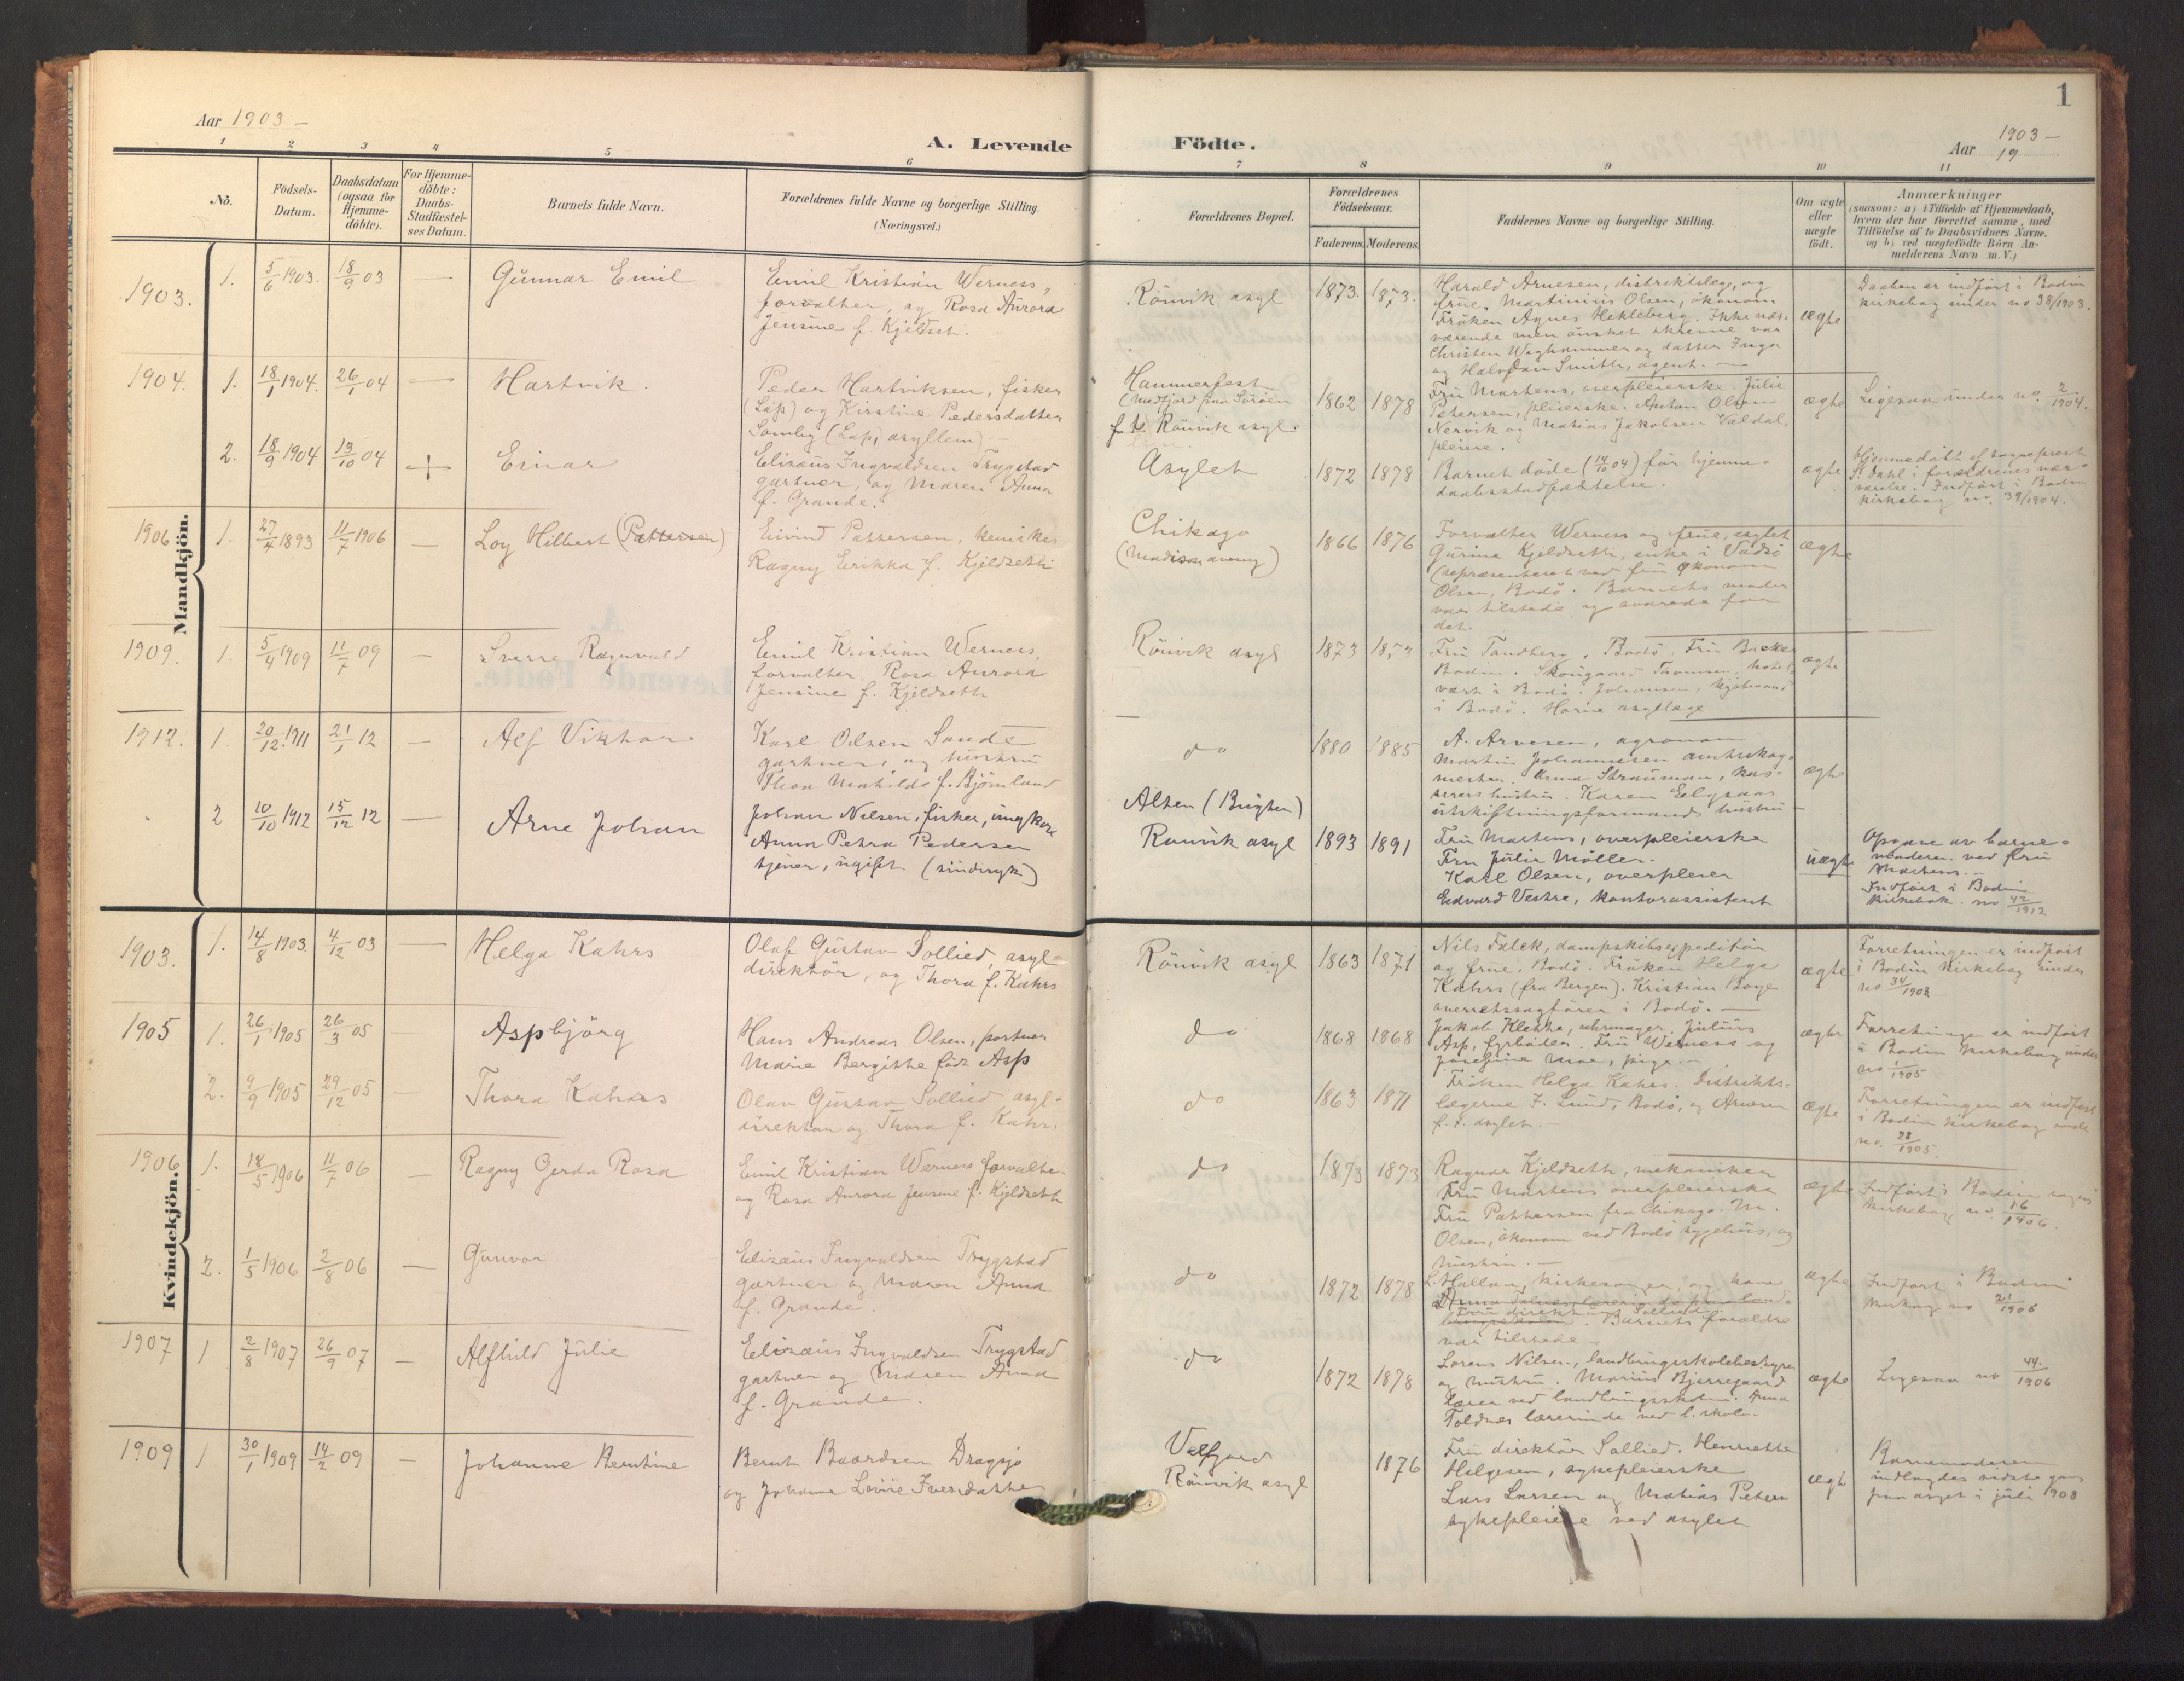 Aar 1903 –
A. Levende
Födte.
1
1903 –
Aar 19
1
2
3
4
5
6
7
8
9
10
11
Nö.
Födsels-
Datum.
Daabsdatum
(ogsaa for
Hjemme-
döbte).
For Hjemme-
döbte:
Daabs-
Stadfæstel-
ses Datum.
Barnets fulde Navn.
Forældrenes fulde Navne og borgerlige Stilling.
(Næringsvei.)
Forældrenes Bopæl.
Forældrenes
Födselsaar.
Faderens.
Moderens.
Faddernes Navne og borgerlige Stilling.
Om ægte
eller
uægte
födt.
Anmærkninger
(saasom: a) i Tilfælde af Hjemmedaab,
hvem der har forrettet samme, med
Tilföielse af to Daabsvidners Navne,
og b) ved uægtefödte Börn An-
melderens Navn m.V.)
Mandkjön.
1903.
1.
5/6 1903.
18/9 03
—
Gunnar Emil
Emil Kristian Werness,
forvalter, og Rosa Aurora
Jensine f. Kjeldset.
Rönvik asyl
1873.
1873.
Harald Arnesen, distriktslæge, og
frue. Martinius Olsen, ökonom
Fröken Agnes Hekleberg. Ikke nær-
værende men önsket skrevne var
Christen Waghammer og datter Inga
og Halvdan Smith, agent. —
ægte
Daaben er indfört i Bodin
kirkebog under no 38/1903.
1904.
1.
18/1 1904.
26/1 04
—
Hartvik.
Peder Hartviksen, fisker
(Lap) og Kirstine Pedersdatter
Somby (Lap, asyllem). —
Hammerfest
(Medfjord paa Söröen
f. t. Rönvik asyl.
1862
1878
Fru Martens, overpleierske. Julie
Petersen, pleierske. Anton Olsen
Nervik og Matias Jakobsen Valdal,
pleiere.
ægte
Ligesaa under no. 2/1904.
2.
18/9 1904
13/10 04
+
Einar
Elizæus Ingvaldsen Trygstad
gartner, og Maren Anna
f. Grande.
Asylet
1872
1878
Barnet döde (14/10 04) för hjemme-
daabsstadfæstelse.
ægte
Hjemmedöbt af sogneprest
S. Dahl i forældrenes nær-
værelse. Indfört i Bodin
kirkebog no. 39/1904.
1906
1.
27/4 1893
11/7 1906
—
Loy Hilbert (Pattersen)
Eivind Pattersen, kemiker
Ragny Erikka f. Kjeldseth
Chikago
(Madison aveny)
1866
1876
Forvalter Werness og frue, asylet
Gurine Kjeldseth, enke i Vadsö
(repræsenteret ved fru ökonom
Olsen, Bodö. Barnets moder
var tilstede og svarede for
det.
ægte
1909.
1.
5/4 1909
11/7 09
—
Sverre Ragnvald
Emil Kristian Werness,
forvalter. Rosa Aurora
Jensine f. Kjeldseth
Rönvik asyl
1873
1873
Fru Tandberg, Bodö. Fru Backer
Bodin. Skougaard Thomsen, hotel-
vært i Bodö. Johansen, kjöbmand
i Bodö. Horne asyllæge
ægte
1912.
1.
20/12 1911
21/1 12
—
Alf Viktor
Karl Olsen Sunde
gartner, og hustru
Thea Mathilde f. Bjömland
do
1880
1885
A. Arvesen, agronom
Martin Johannesen amtsskog-
mester. Anna Strauman, kas-
serers hustru. Karen Elgsaas
utskiftningsformands hustru —
ægte
2
10/10 1912
15/12 12
—
Arne Johan
Johan Nilsen, fisker, ungkar
Anna Petra Pedersen
tjener, ugift (sindssyk)
Alten (Brugten)
Rönvik asyl
1893
1891
Fru Martens, overpleierske
Fru Julie Möller.
Karl Olsen, overpleier
Edvard Vestre, kontorassistent
uægte
Opgave av barne-
moderen ved fru
Martens. —
Indfört i Bodin
kirkebok. no 42/1912
Kvindekjön.
1903.
1.
14/8 1903
4/12 03
—
Helga Kahrs
Olaf Gustav Sollied, asyl-
direktör, og Thora f. Kahrs
Rönvik asyl
1863
1871
Nils Falck, dampskibsexpeditör
og frue, Bodö. Fröken Helga
Kahrs (fra Bergen). Kristian Boye
overretssagförer i Bodö. —
ægte
Forretningen er indfört
i Bodin kirkebog under
no 34/1903
1905
1.
26/1 1905
26/3 05
—
Aspbjörg
Hans Andreas Olsen, portner
Marie Bergithe födt Asp
do
1868
1868
Jakob Klette, uhrmager. Julius
Asp, fyrböder. Fru Werness og
Josefine Moe, pige. —
ægte
Forretningen er indfört
i Bodin kirkebog under
no 1/1905
2.
9/9 1905
29/12 05
—
Thora Kahrs
Olav Gustav Sollied asyl-
direktör og Thora f. Kahrs
do
1863
1871
Fröken Helga Kahrs. Distrikts-
lægerne F. Lund, Bodö, og Arnesen
f. t. asylet. —
ægte
Forretningen er indfört
i Bodin kirkebog under
no. 28/1905.
1906
1.
18/5 1906
11/7 06
—
Ragny Gerda Rosa
Emil Kristian Werness forvalter
og Rosa Aurora Jensine f. Kjeldseth
do
1873
1873
Ragnar Kjeldseth, mekaniker
Fru Martens overpleierske
Fru Pattersen fra Chikago. M.
Olsen, ökonom ved Bodö sygehus, og
hustru.
ægte
Indfört i Bodin sogns
kirkebog no. 16/1906.
2.
1/5 1906
2/8 06
—
Gunvor
Elizæus Ingvaldsen Trygstad
gartner og Maren Anna
f. Grande.
do
1872
1878
L. Hallan, kirkesanger, og kone
Fru direktör Sollied. Barnets forældre
var tilstede —
ægte
Indfört i Bodin
kirkebog no 21/1906
1907
1
2/8 1907
26/9 07
—
Alfhild Julie
Elizæus Ingvaldsen Trygstad
gartner og Maren Anna
f. Grande.
do
1872
1878
Lorens Nilsen, landbrugsskolebestyrer
og hustru. Marius Bjerregaard
lærer ved landbrugsskolen. Anna
Toldnes lærerinde ved l. skolen.
ægte
Ligesaa no 44/1906
1909
1
30/1 1909
14/2 09
—
Johanne Berntine
Bernt Baardsen Dragsjö
og Johanna Lovise Iversdatter
Velfjord
Rönvik asyl
1876
Fru direktör Sollied. Henriette
Helgesen, sykepleierske
Lars Larsen og Mathias Petersen
sykepleiere ved asylet
ægte
Barnemoderen
indlagdes sidste gang
paa asylet i juli 1908